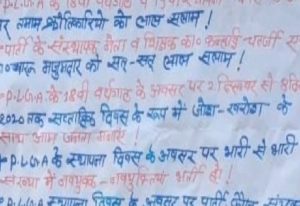 P.L.G.A के 18वीं वर्षगांठ व
र तमाम क्रांतिकारियों को लाल सलाम!
पार्टी के संस्थापक नेता व शिक्षक को० कन्हाई चटर्जी
मजुमदार को सत्-सत् लाल सलाम!
P.L.G.A के 18वीं वर्षगांठ के अवसर पर 2 दिसम्बर से
2020 तक सप्ताहिक दिवस के रूप में जोश-खरोश के
साथ आम जनता मनाएं!
P.L.G.A के स्थापना दिवस के अवसर पर भारी से भारी
संख्या में नवयुवक-नवयुवतियां भर्ती हों!
स्थापना दिवस के अवसर पर पार्टी